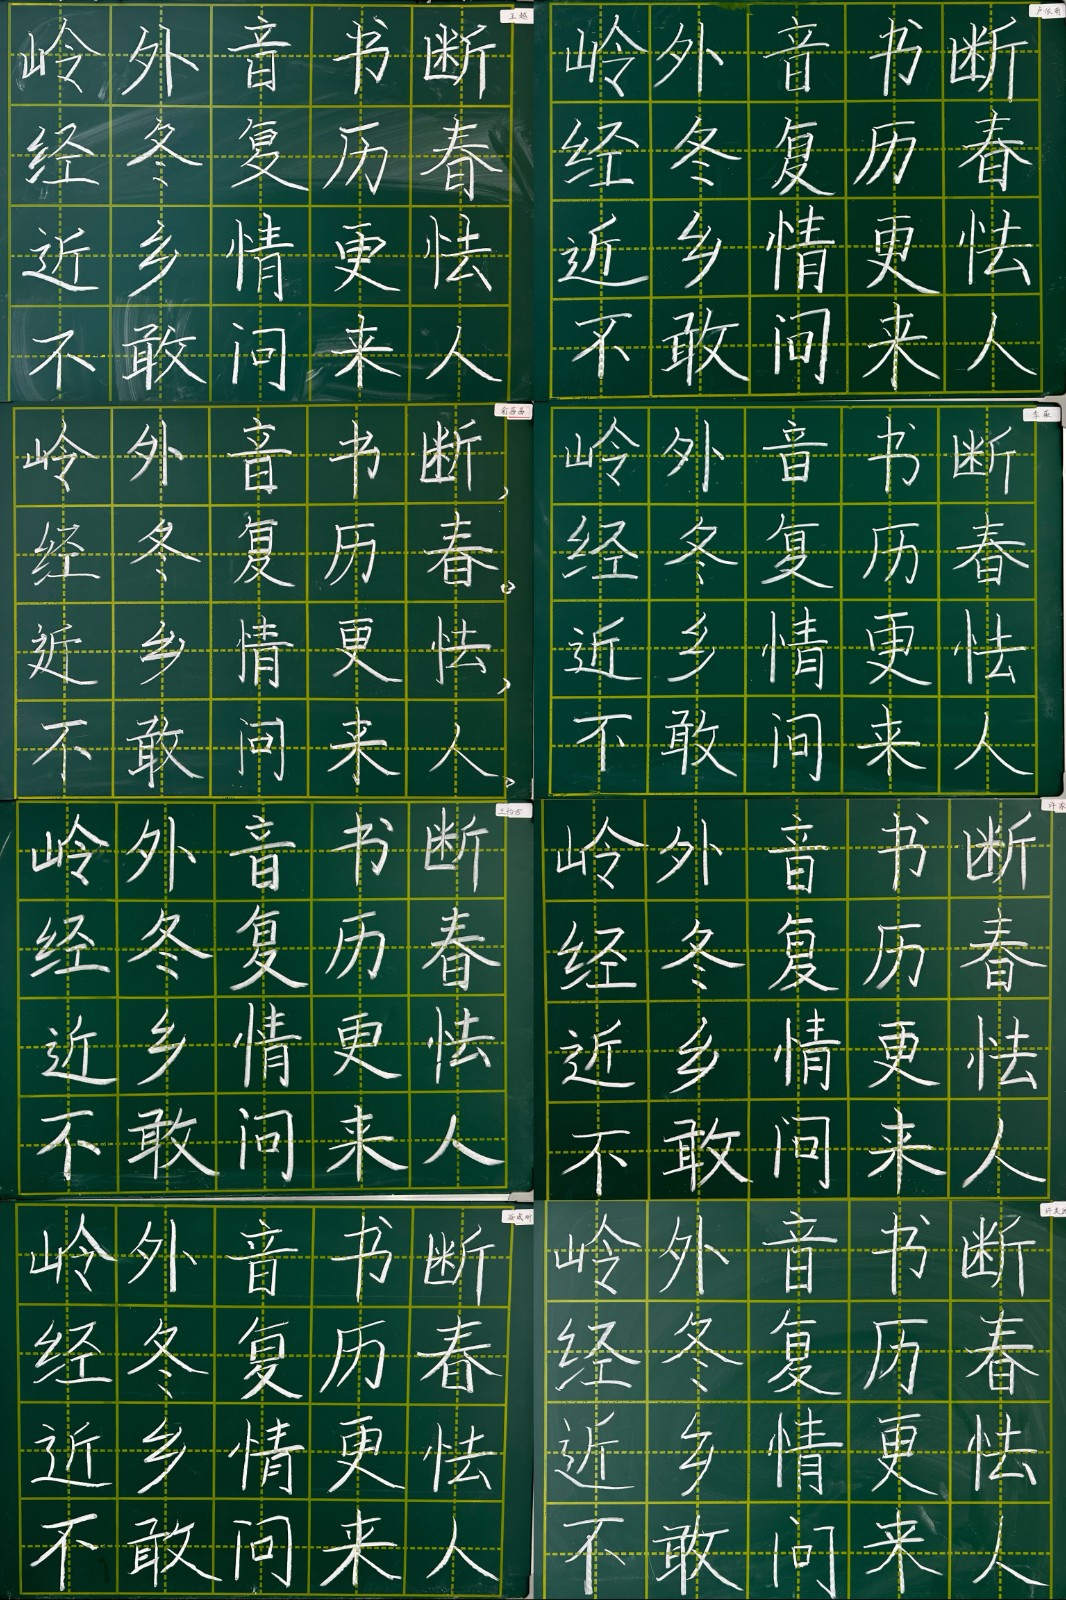 王越
岭外音书断
经冬复历春
近乡情更怯
不敢问来人
岭外音书断
经冬复历春
近乡情更怯
不敢问来人
岭外音书断，
经冬复历春。
近乡情更怯，
不敢问来人。
岭外音书断
经冬复历春
近乡情更怯
不敢问来人
岭外音书断
经冬复历春
近乡情更怯
不敢问来人
岭外音书断
经冬复历春
近乡情更怯
不敢问来人
岭外音书断
经冬复历春
近乡情更怯
不敢问来人
岭外音书断
经冬复历春
近乡情更怯
不敢问来人